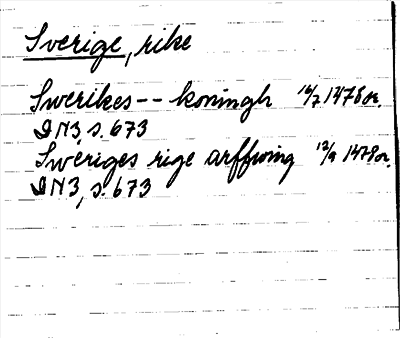 Sverige, rike
Swerikes -- koningh 16/7 1478 or.
DN3, s. 673
Sweriges rige arffwing 12/9 1478 or.
DN3, s. 673